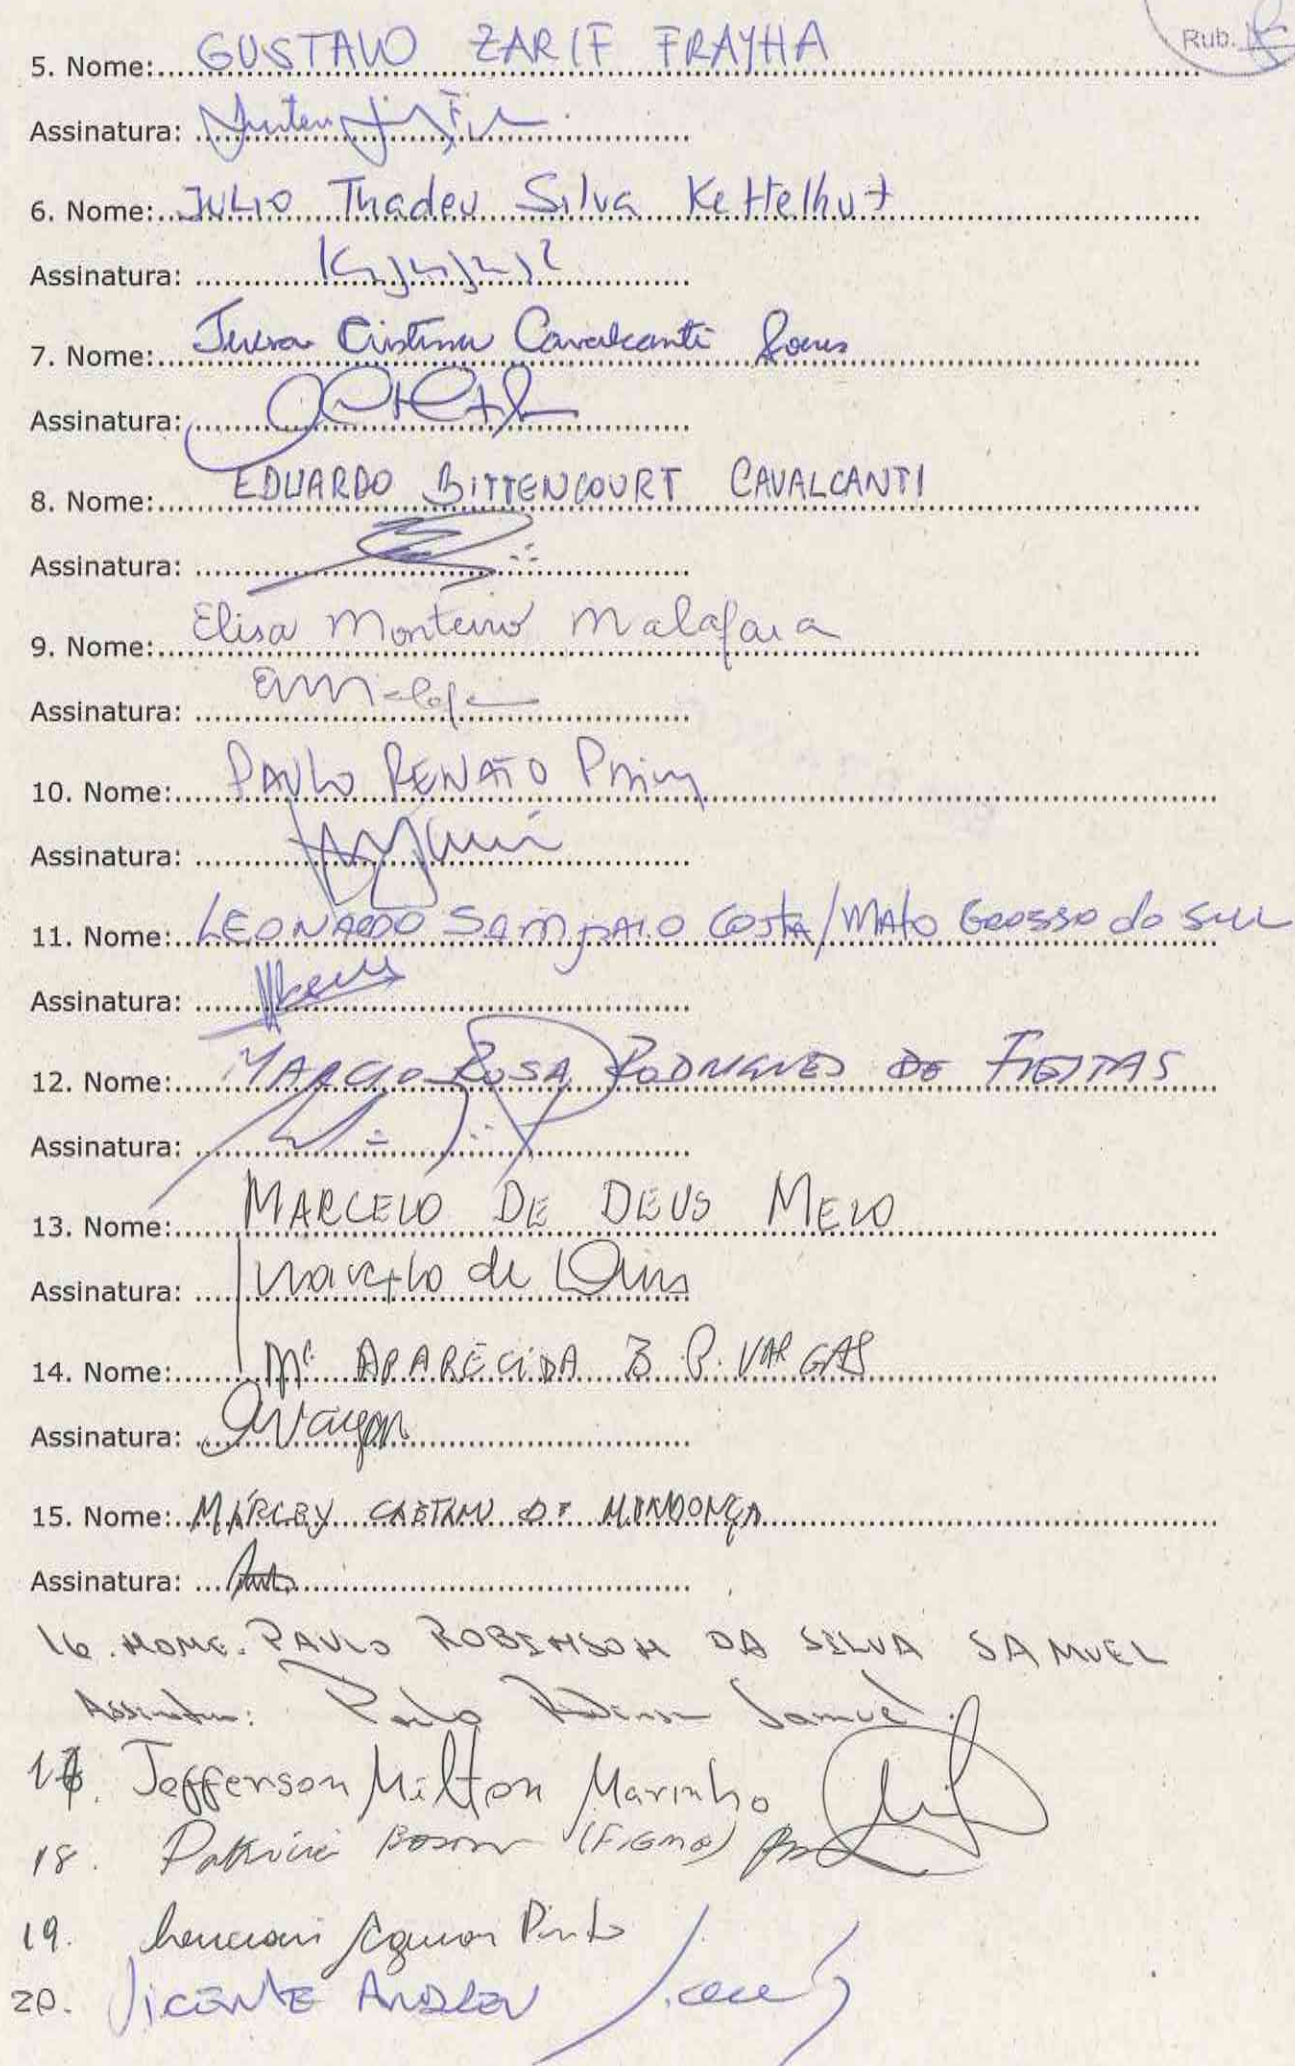 Rub.
5. Nome: GUSTAVO ZARIF FRAYHA
Assinatura:
6. Nome: JULIO Thadeu Silva Kettelhut
Assinatura:
7. Nome: Cristina Cavalcanti
Assinatura:
8. Nome: EDUARDO BITTENCOURT CAVALCANTI
Assinatura:
9. Nome: Elisa Monteiro Malafaia
Assinatura:
10. Nome: PAULO RENATO Paiva
Assinatura:
11. Nome: LEONARDO SAMPAIO COSTA/MATO GROSSO do SUL
Assinatura:
12. Nome: MARCIO ROSA RODRIGUES DE FREITAS
Assinatura:
13. Nome: MARCELO DE DEUS MELO
Assinatura: Marcelo de Deus
14. Nome: Mª APARECIDA B. P. VARGAS
Assinatura: Vargas
15. Nome: MÁRLEY CAETANO DE MENDONÇA
Assinatura:
16. NOME. PAULO ROBINSON DA SILVA SAMUEL
Assinatura: Paulo Robinson Samuel
17. Jefferson Milton Marinho
18. Patricia Boson (FIEMG)
19. Aguiar Pinto
20. VICENTE ANDREU